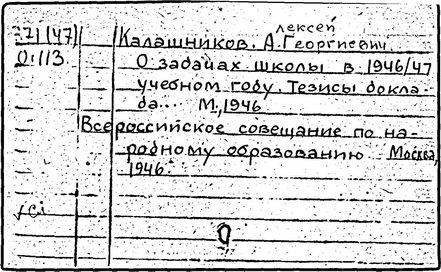 371(47) Калашников, Алексей Георгиевич.
0:113. О задачах школы в 1946/47
учебном году. Тезисы докла-
да... М., 1946.
Всероссийское совещание по на-
родному образованию. Москва,
1946.